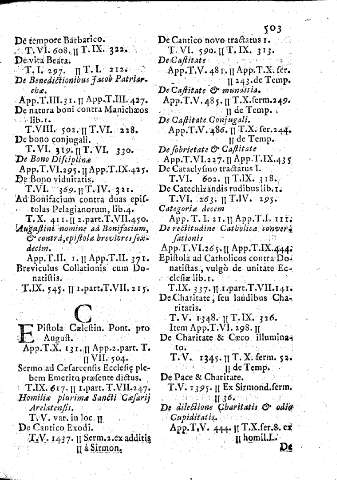 503
De tempore Barbarico.
T. VI. 608. || T. IX. 322.
De vita Beata.
T. I. 297. || T. I. 212.
De Benedictionibus Jacob Patriar-
chæ.
App. T. III. 31. || App. T. III. 427.
De natura boni contra Manichæos
lib. 1.
T. VIII. 502. || T. VI. 228.
De bono conjugali.
T. VI. 319. || T. VI. 330.
De Bono Disciplinæ
App. T. VI. 295. || App. T. IX. 425.
De Bono viduitatis.
T. VI. 369. || T. IV. 321.
Ad Bonifacium contra duas epis-
tolas Pelagianorum, lib. 4.
T. X. 411. || 2. part. T. VII. 450.
Augustini nomine ad Bonifacium,
& contrà, epistolæ breviores sex-
decim.
App. T. II. 1. || App. T. II. 371.
Breviculus Collationis cum Do-
natistis.
T. IX. 545. || 1. part. T. VII. 215.
C
Epistola Cælestin. Pont. pro
August.
App. T. X. 131. || App. 2. part. T.
|| VII. 504.
Sermo ad Cæsareensis Ecclesiæ ple-
bem Emerito præsente dictus.
T. IX. 617. || 1. part. T. VII. 247.
Homiliæ plurimæ Sancti Cæsarij
Arelatensis.
T. V. var. in loc. ||
De Cantico Exodi.
T. V. 1437. || Serm. 2. ex additis
|| à Sirmon.
De Cantico novo tractatus 1.
T. VI. 590. || T. IX. 313.
De Castitate
App. T. V. 481. || App. T. X. ser.
|| 243. de Temp.
De Castitate & munditia.
App. T. V. 485. || T. X. serm. 249.
|| de Temp.
De Castitate Conjugali.
App. T. V. 486. || T. X. ser. 244.
|| de Temp.
De sobrietate & Castitate
App. T. VI. 227. || App. T. IX. 435
De Cataclysmo tractatus 1.
T. VI. 602. || T. IX. 318.
De Catechizandis rudibus lib. 1.
T. VI. 263. || T. IV. 295.
Categoriæ decem
App. T. I. 21. || App. T. I. 111.
De rectitudine Catholicæ conver-
sationis
App. T. VI. 265. || App. T. IX. 444.
Epistola ad Catholicos contra Do-
natistas, vulgò de unitate Ec-
clesiæ lib. 1.
T. IX. 337. || 1. part. T. VII. 141.
De Charitate, seu laudibus Cha-
ritatis.
T. V. 1348. || T. IX. 326.
Item App. T. VI. 298. ||
De Charitate & Cæco illumina-
to.
T. V. 1345. || T. X. serm. 52.
|| de Temp.
De Pace & Charitate.
T. V. 1395. || Ex Sirmond. serm.
|| 36.
De dilectione Charitatis & odio
Cupiditatis.
App. T. V. 444. || T. X. ser. 8. ex
|| homil. L.
De